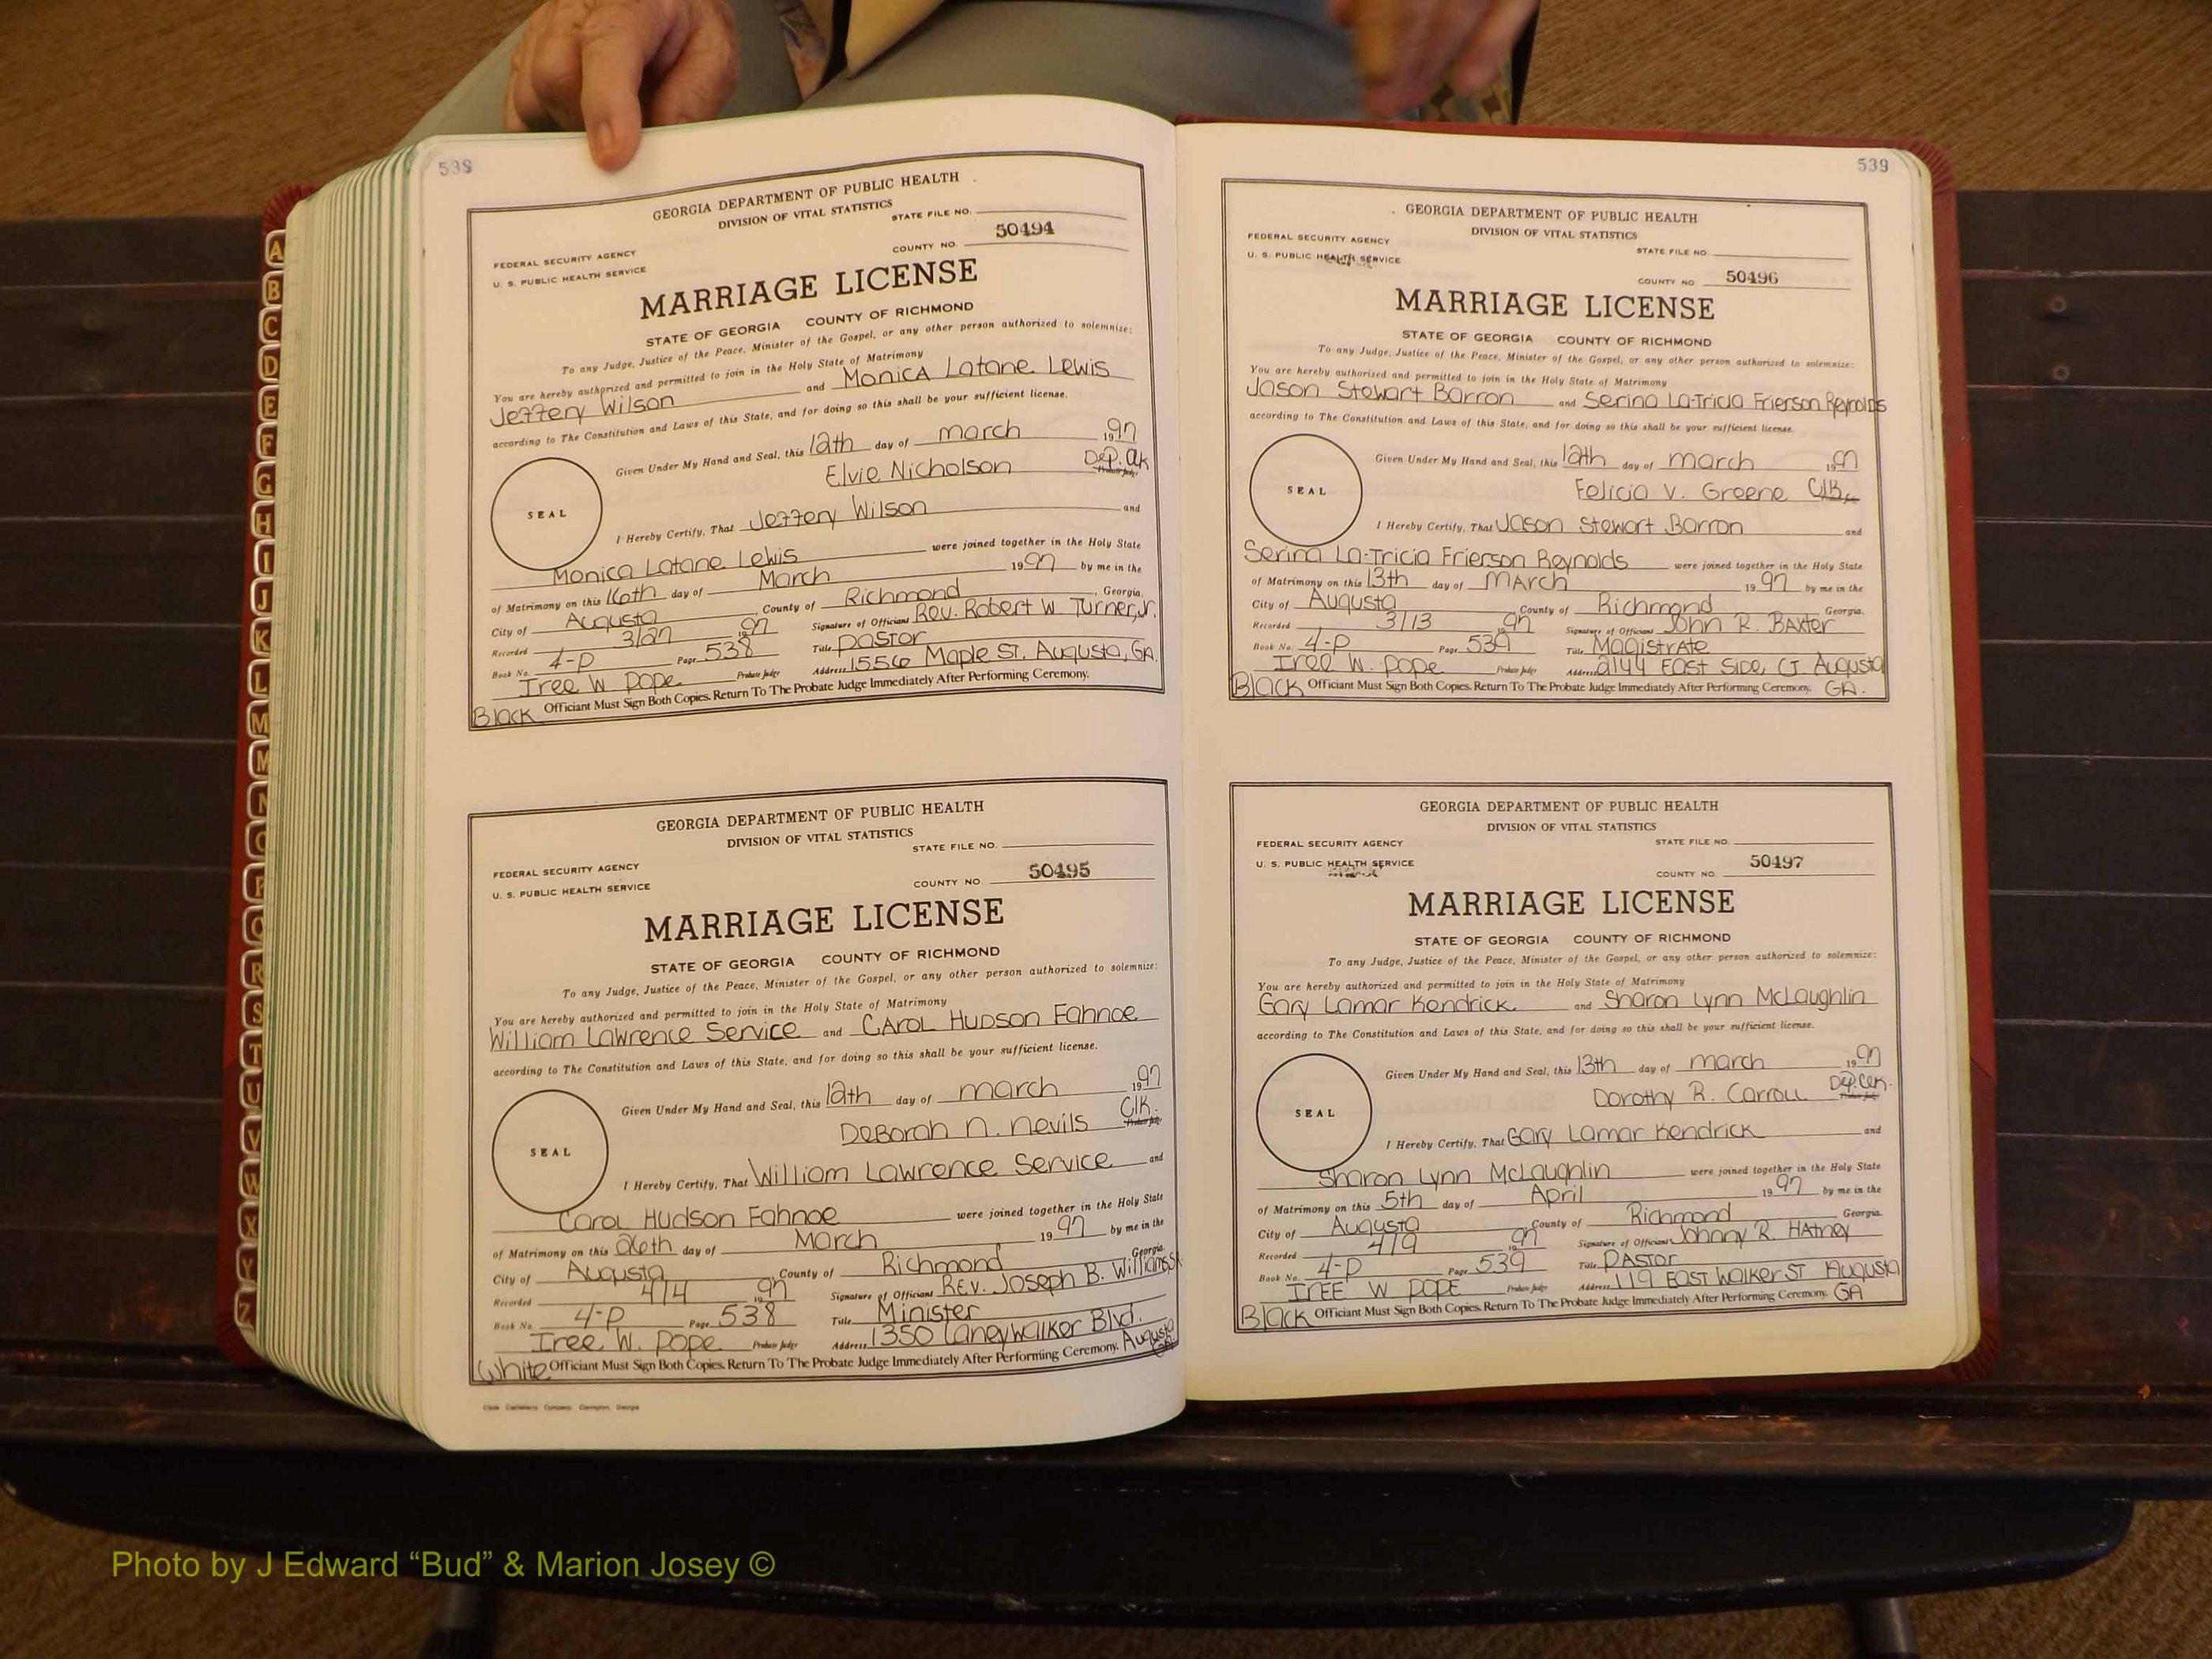 538
GEORGIA DEPARTMENT OF PUBLIC HEALTH
DIVISION OF VITAL STATISTICS
STATE FILE NO.
FEDERAL SECURITY AGENCY
COUNTY NO. 50494
U. S. PUBLIC HEALTH SERVICE
MARRIAGE LICENSE
STATE OF GEORGIA COUNTY OF RICHMOND
To any Judge, Justice of the Peace, Minister of the Gospel, or any other person authorized to solemnize:
You are hereby authorized and permitted to join in the Holy State of Matrimony
Jeffery Wilson and Monica Latane Lewis
according to The Constitution and Laws of this State, and for doing so this shall be your sufficient license.
Given Under My Hand and Seal, this 12th day of March 1997
Elvie Nicholson Dep. Clk
SEAL
I Hereby Certify, That Jeffery Wilson and
Monica Latane Lewis were joined together in the Holy State
of Matrimony on this 16th day of March 1997 by me in the
City of Augusta, County of Richmond, Georgia.
Recorded 3/27 1997 Signature of Officiant Rev. Robert W. Turner, Jr.
Book No. 4-P Page 538 Title Pastor
Iree W. Pope Probate Judge Address 1556 Maple St. Augusta, GA.
Black Officiant Must Sign Both Copies. Return To The Probate Judge Immediately After Performing Ceremony.
GEORGIA DEPARTMENT OF PUBLIC HEALTH
DIVISION OF VITAL STATISTICS
STATE FILE NO.
FEDERAL SECURITY AGENCY
COUNTY NO. 50495
U. S. PUBLIC HEALTH SERVICE
MARRIAGE LICENSE
STATE OF GEORGIA COUNTY OF RICHMOND
To any Judge, Justice of the Peace, Minister of the Gospel, or any other person authorized to solemnize:
You are hereby authorized and permitted to join in the Holy State of Matrimony
William Lawrence Service and Carol Hudson Fahnoe
according to The Constitution and Laws of this State, and for doing so this shall be your sufficient license.
Given Under My Hand and Seal, this 12th day of March 1997
Deborah N. Nevils Clk.
SEAL
I Hereby Certify, That William Lawrence Service and
Carol Hudson Fahnoe were joined together in the Holy State
of Matrimony on this 26th day of March 1997 by me in the
City of Augusta, County of Richmond Georgia.
Recorded 4/4 1997 Signature of Officiant Rev. Joseph B. Williams, Sr.
Book No. 4-P Page 538 Title Minister
Iree W. Pope Probate Judge Address 1350 Laneywalker Blvd. Augusta GA
White Officiant Must Sign Both Copies. Return To The Probate Judge Immediately After Performing Ceremony.
539
GEORGIA DEPARTMENT OF PUBLIC HEALTH
DIVISION OF VITAL STATISTICS
FEDERAL SECURITY AGENCY
STATE FILE NO.
U. S. PUBLIC HEALTH SERVICE
COUNTY NO. 50496
MARRIAGE LICENSE
STATE OF GEORGIA COUNTY OF RICHMOND
To any Judge, Justice of the Peace, Minister of the Gospel, or any other person authorized to solemnize:
You are hereby authorized and permitted to join in the Holy State of Matrimony
Jason Stewart Barron and Serina La-Tricia Frierson Reynolds
according to The Constitution and Laws of this State, and for doing so this shall be your sufficient license.
Given Under My Hand and Seal, this 12th day of March 1997
Felicia V. Greene Clk
SEAL
I Hereby Certify, That Jason Stewart Barron and
Serina La-Tricia Frierson Reynolds were joined together in the Holy State
of Matrimony on this 13th day of March 1997 by me in the
City of Augusta, County of Richmond Georgia.
Recorded 3/13 1997 Signature of Officiant John R. Baxter
Book No. 4-P Page 539 Title Magistrate
Iree W. Pope Probate Judge Address 2144 East Side Ct. Augusta
Black Officiant Must Sign Both Copies. Return To The Probate Judge Immediately After Performing Ceremony. GA.
GEORGIA DEPARTMENT OF PUBLIC HEALTH
DIVISION OF VITAL STATISTICS
FEDERAL SECURITY AGENCY
STATE FILE NO.
U. S. PUBLIC HEALTH SERVICE
COUNTY NO. 50497
MARRIAGE LICENSE
STATE OF GEORGIA COUNTY OF RICHMOND
To any Judge, Justice of the Peace, Minister of the Gospel, or any other person authorized to solemnize:
You are hereby authorized and permitted to join in the Holy State of Matrimony
Gary Lamar Kendrick and Sharon Lynn McLaughlin
according to The Constitution and Laws of this State, and for doing so this shall be your sufficient license.
Given Under My Hand and Seal, this 13th day of March 1997
Dorothy R. Carroll Dep. Clk.
SEAL
I Hereby Certify, That Gary Lamar Kendrick and
Sharon Lynn McLaughlin were joined together in the Holy State
of Matrimony on this 5th day of April 1997 by me in the
City of Augusta, County of Richmond Georgia.
Recorded 4/9 1997 Signature of Officiant Johnny R. Hatney
Book No. 4-P Page 539 Title Pastor
Iree W Pope Probate Judge Address 119 East Walker St Augusta
Black Officiant Must Sign Both Copies. Return To The Probate Judge Immediately After Performing Ceremony. GA
A
B
C
D
E
F
G
H
I
J
K
L
M
M
N
O
P
Q
R
S
T
U
V
W
X
Y
Z
Photo by J Edward “Bud” & Marion Josey ©